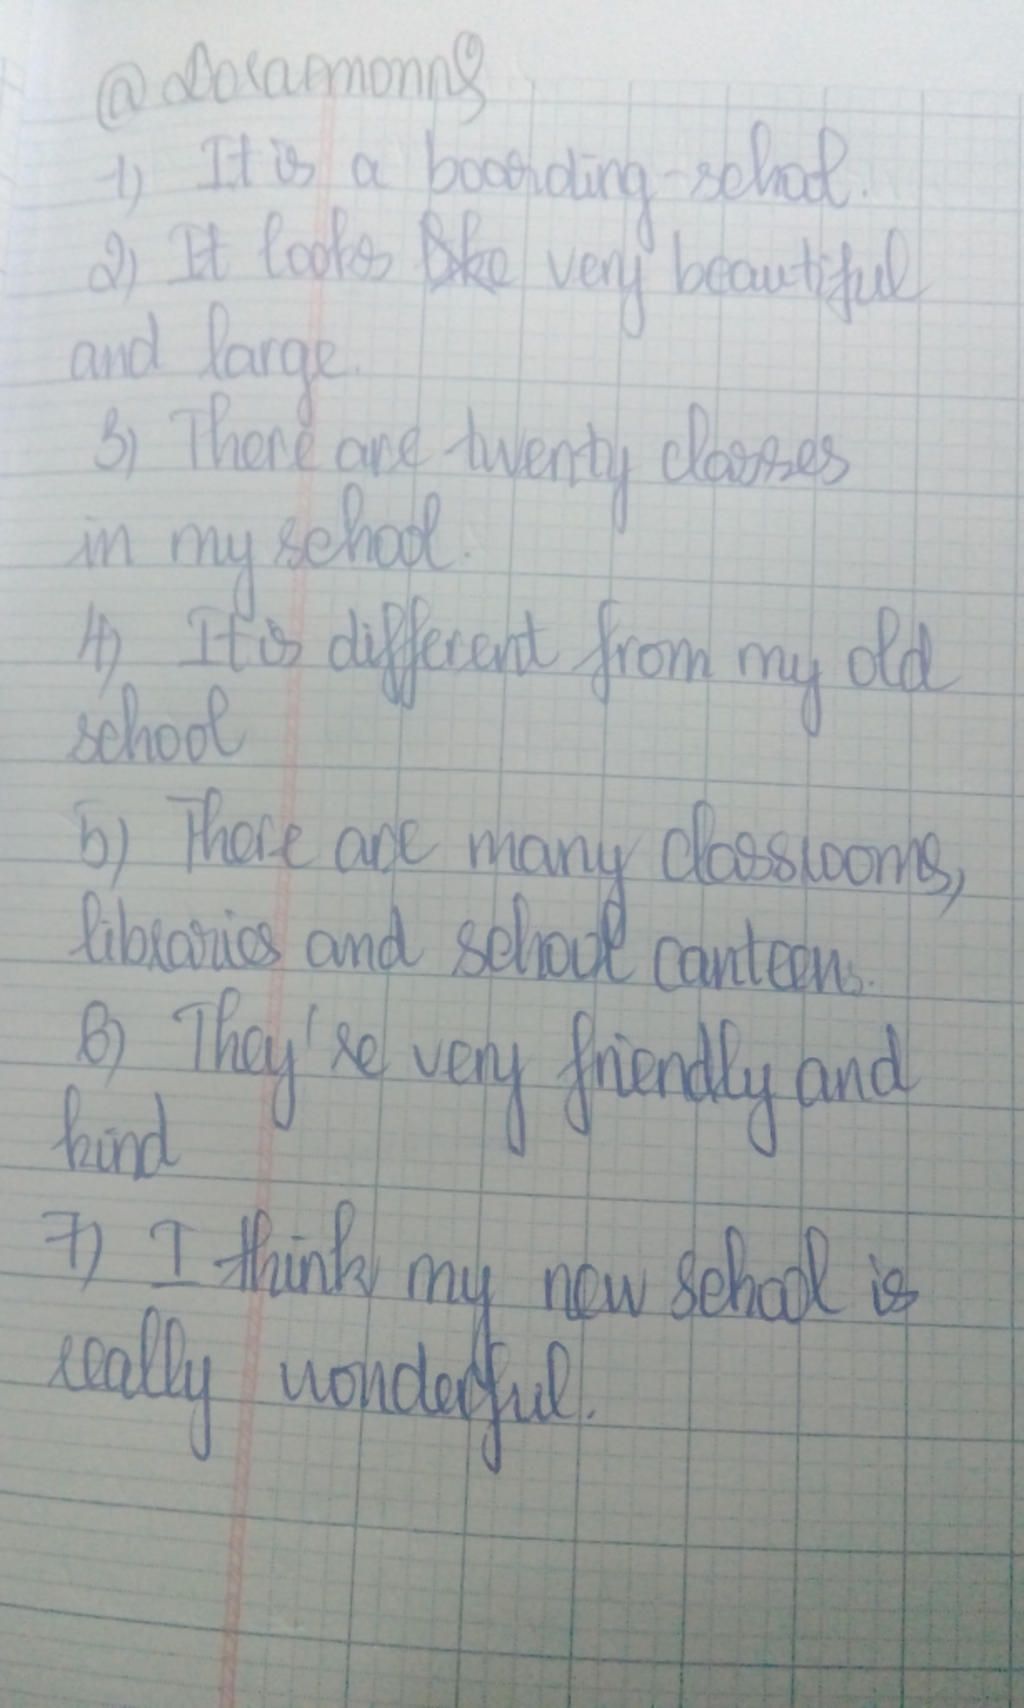 1) It is a boarding-school.
2) It looks like very beautiful
and large.
3) There are twenty classes
in my school.
4) It is different from my old
school
5) There are many classrooms,
libraries and school canteens.
6) They're very friendly and
kind
7) I think my new school is
really wonderful.